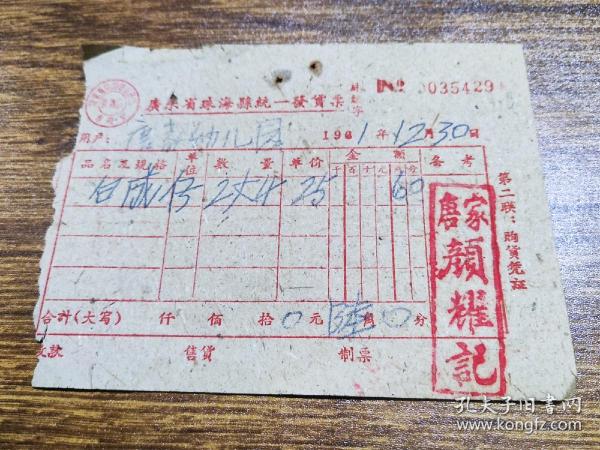 廣東省珠海縣統一發貨票
№ 0035429
用户: 唐家幼儿园 1961年12月30日
品名及規格 單位 數量 单价 金額 备考
千 百 十 元 角 分
白咸仔 2大卜 25 60
合計(大写) 仟 佰 拾 0 元 陆 角 0 分
收款 售貨 制票
第二联:购貨凭証
唐家
顏耀記
孔夫子旧书网
kongfz.com